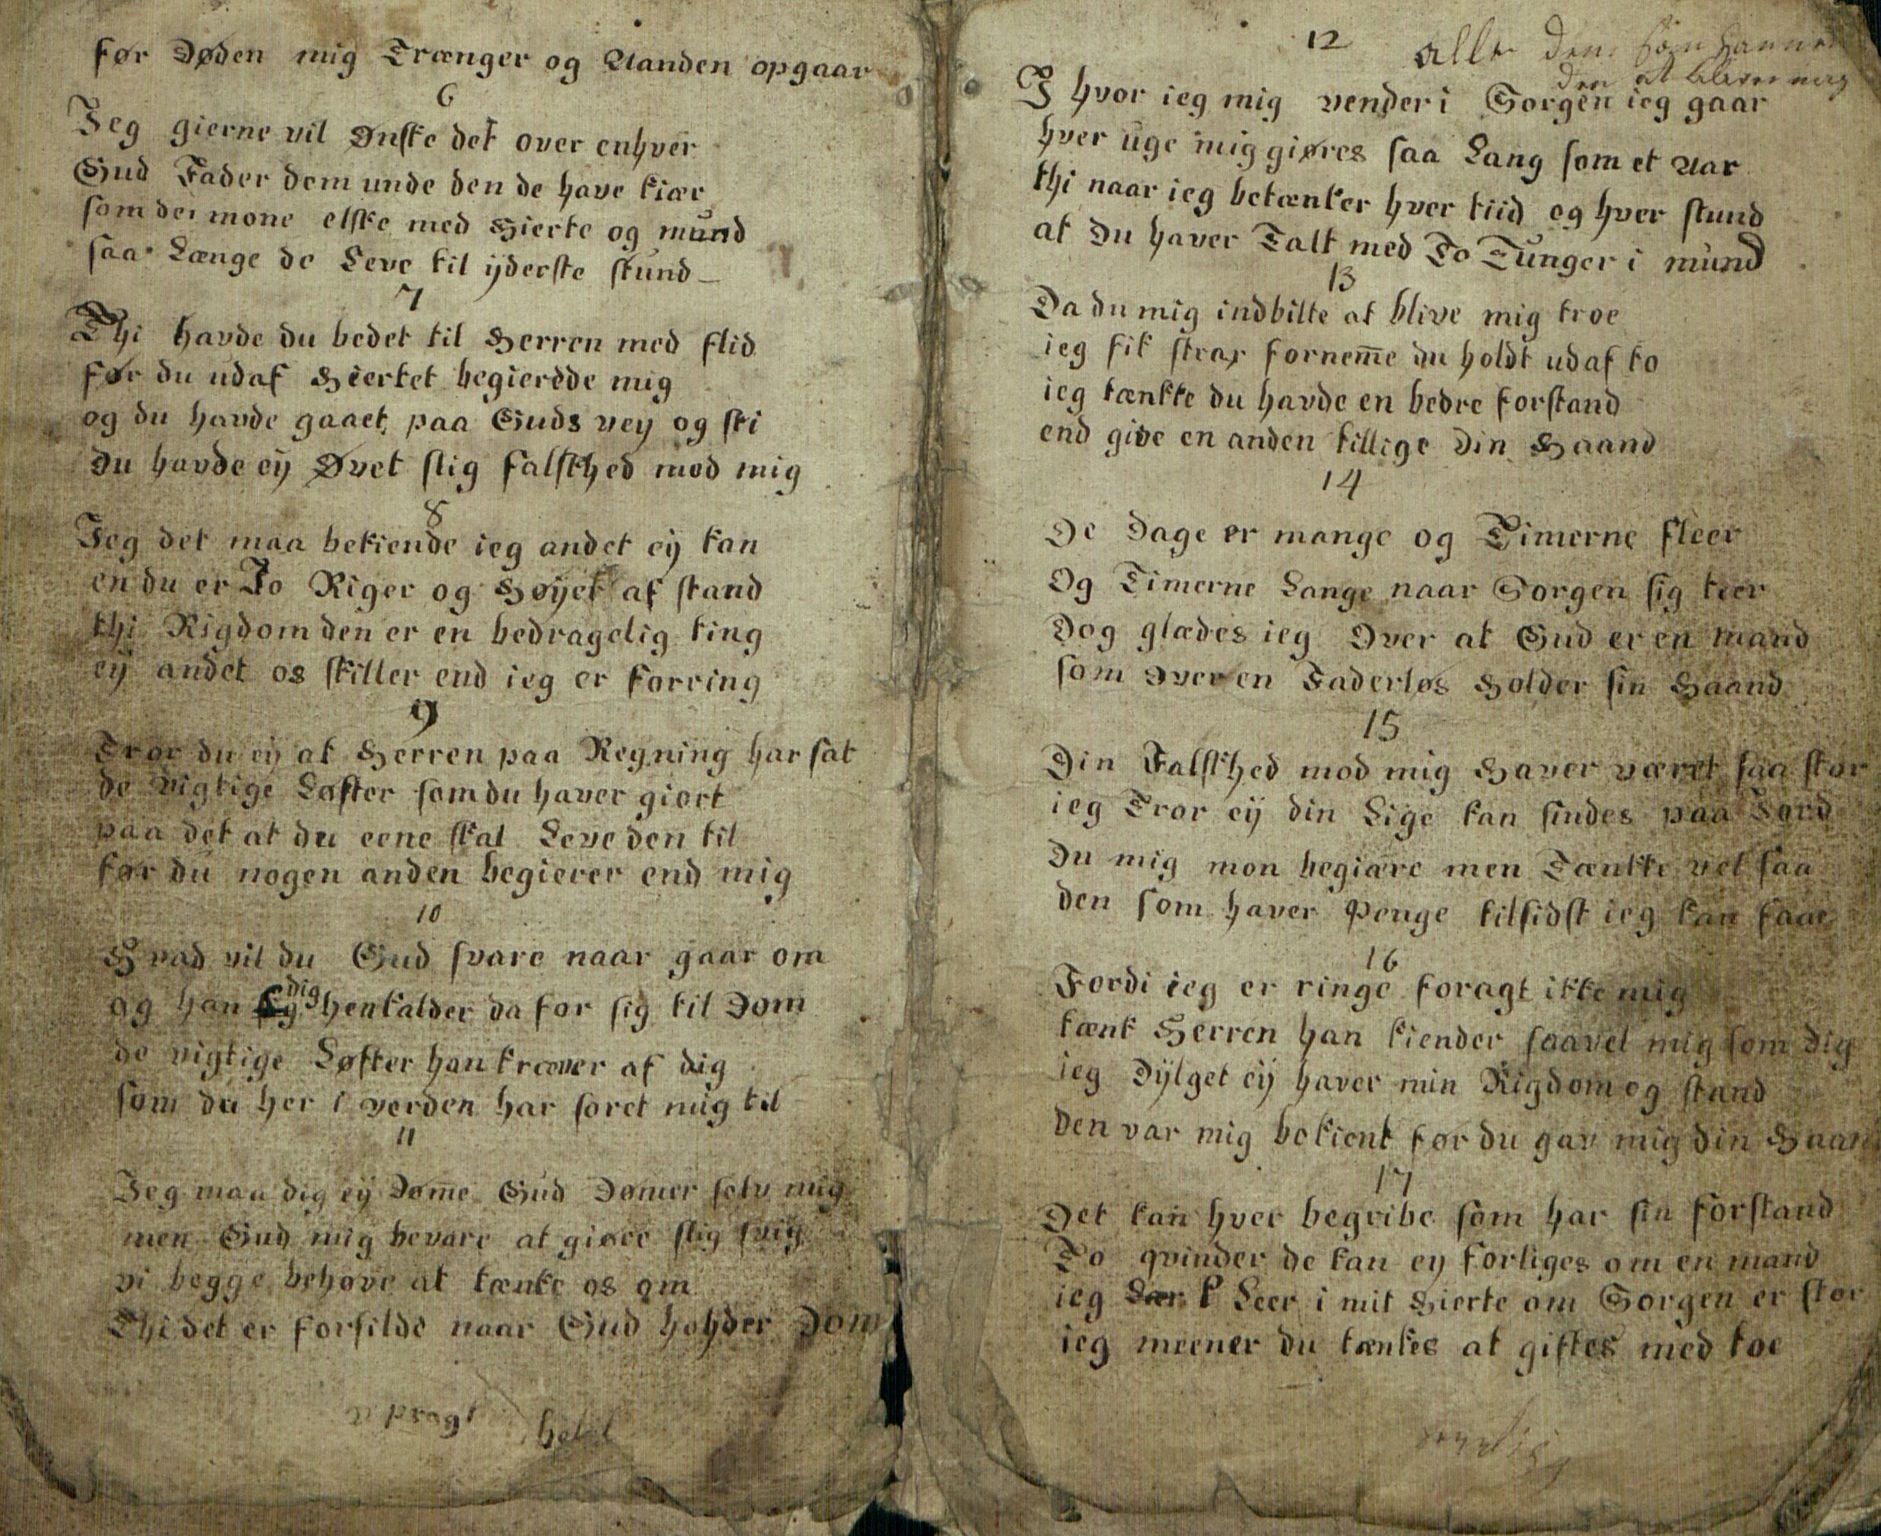 før Døden mig Trænger og Aanden opgaar
6
Jeg gierne vil Ønske det over enhver
Gud Fader dem unde den de have kiær
som dei mone elske med Hierte og mund
saa Længe de Leve til ÿderste stund
7
Thi havde du bedet til Herren med flid
før du udaf Hiertet begierdde mig
og du havde gaaet paa Guds vey og sti
Du havde eÿ Øvet slig falskhed mod mig
8
Jeg det maa bekiende ieg andet eÿ kan
en du er Jo Riger og Høÿet af stand
thi Rigdom den er en bedragelig ting
eÿ andet os skiller end ieg er forring
9
Tror du eÿ at Herren paa Regning har sat
de vigtige Løfter som du haver giort
paa det at du eene skal Leve den til
før du nogen anden begierer end mig
10
Hvad vil du Gud svare naar gaar om
og han dig henkalder da for sig til Dom
de vigtige Løfter han kræver af dig
som du her i verden har soret mig til
11
Jeg maa dig eÿ Døme Gud Dømer selv mig
men Gud mig bevare at giøre slig svig
vi begge behøve at tænke os om
Thi det er forsilde naar Gud hohder Dom
pragt
12
alle den som
den at bliver mig
I hvor ieg mig vender i Sorgen ieg gaar
hver uge mig giøres saa Lang som et Aar
thi naar ieg betænker hver tiid og hver stund
at Du haver Talt med To Tunger i mund
13
Da du mig indbilte at blive mig troe
ieg fik strax fornem̅e du holdt udaf to
ieg tænkte du havde en bedre forstand
end give en anden tillige Din Haand
14
De Dage er mange og Timerne fleer
Og Timerne Lange naar Sorgen sig teer
Dog glædes ieg Over at Gud er en mand
som Over en Faderløs Holder sin Haand
15
Din Falskhed mod mig Haver været saa stor
ieg Tror eÿ din Lige kan findes paa Jord
Du mig mon begiære men Tænkte vel saa
den som haver Penge tilsidst ieg kan faae
16
Fordi ieg er ringe foragt ikke mig
tænk Herren han kiender saavel mig som dig
ieg Dÿlget eÿ haver min Rigdom og stand
den var mig bekient før du gav mig din Haan
17
Det kan hver begribe som har sin forstand
To qvinder de kan ey forliges om en mand
ieg Leer i mit Hierte om Sorgen er stor
ieg meener du tænkes at giftes med toe